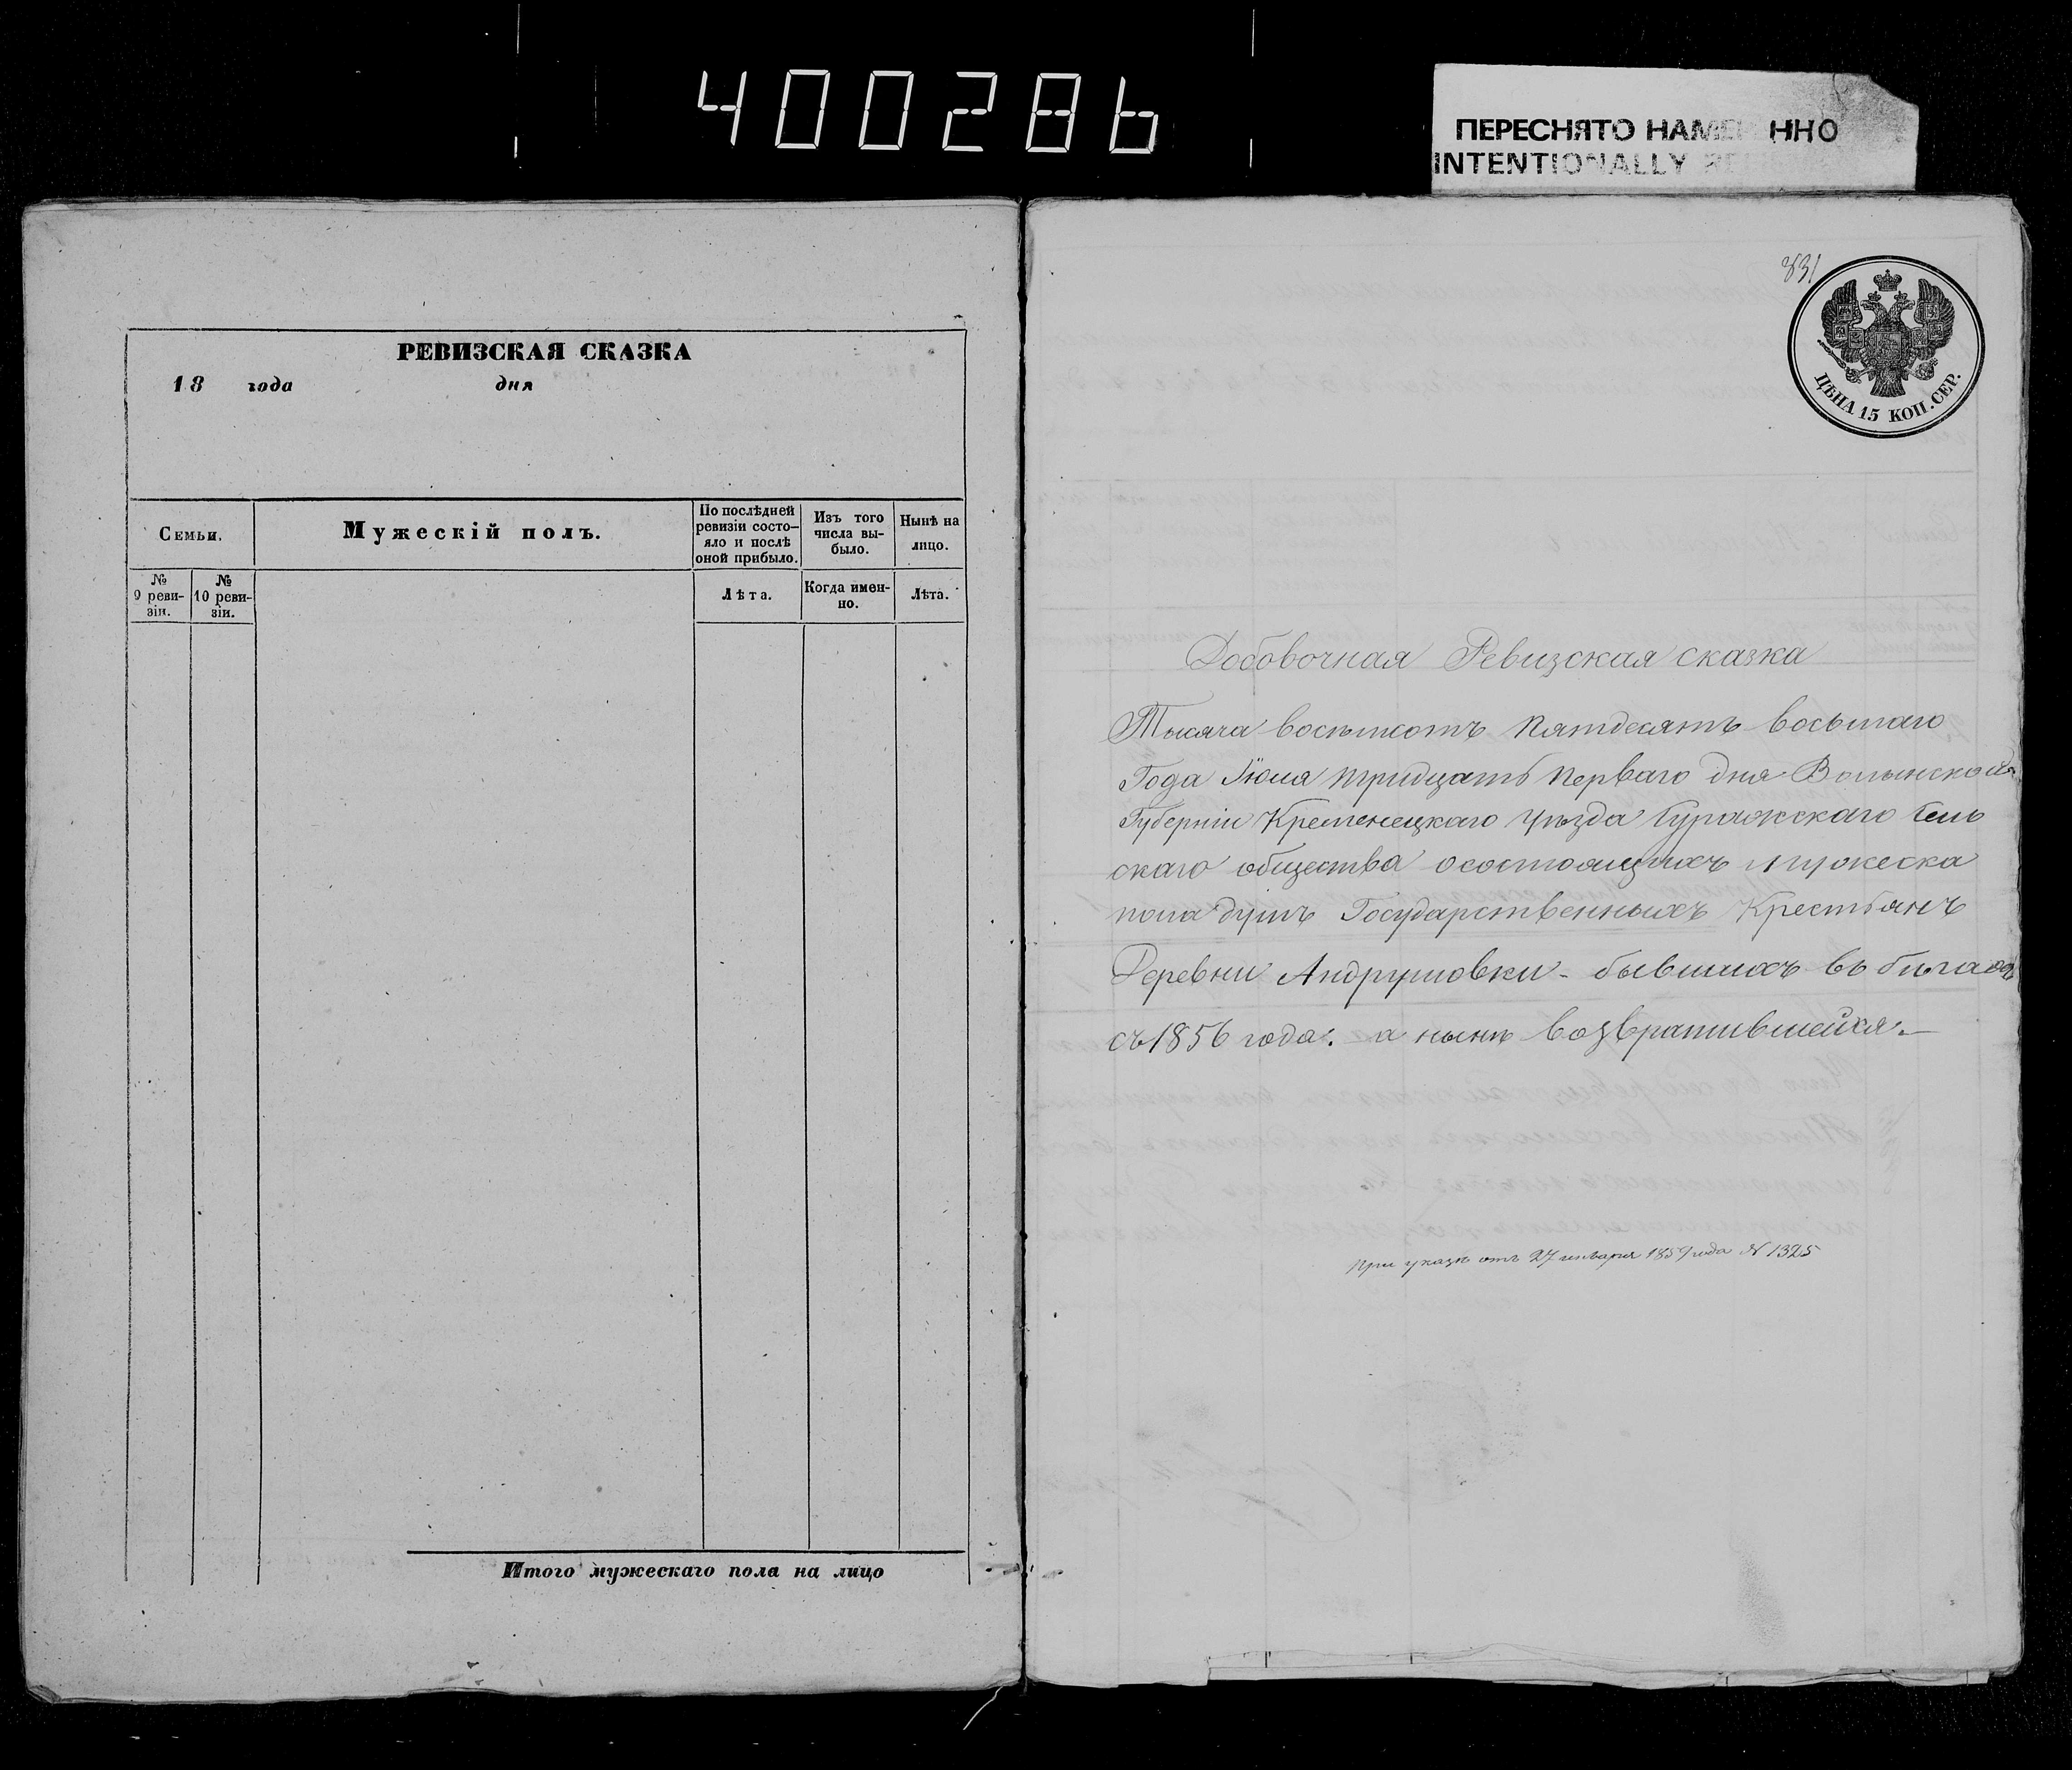 400286
ПЕРЕСНЯТО НАМЕ ННО
INTENTIONALLY RE
РЕВИЗСКАЯ СКАЗКА
18 года дня
Семьи.
Мужескій полъ.
По послѣдней ревизіи состо-
яло и послѣ
оной прибыло.
Изъ того
числа вы-
было.
Нынѣ на
лицо.
№
9 реви-
зіи.
№
10 реви-
зіи.
Лѣта.
Когда имен-
но.
Лѣта.
Итого мужескаго пола на лицо
831
ЦѢНА 15 КОП. СЕР.
Добовочная Ревизская сказка
Тысяча восемсотъ Пятдесятъ восьмаго
Года Іюля тридцать перваго дня Волынской
Губерніи Кременецкаго Уѣзда Куражскаго Сель
скаго общества осостоящихъ мужеска
пола душъ Государственныхъ Крестьянъ
Деревни Андрушовки - бывшихъ въ бѣгахъ
съ 1856 года. а нынѣ возвратившейся. -
При указѣ отъ 27 января 1859 года № 1325